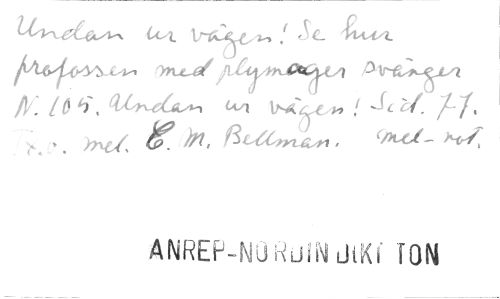 Undan ur vägen! Se hur
profossen med plymager svänger
N. 105. Undan ur vägen! Sid. 77.
T.o. mel. C. M. Bellman. mel-not.
ANREP-NORDIN DIKT TON